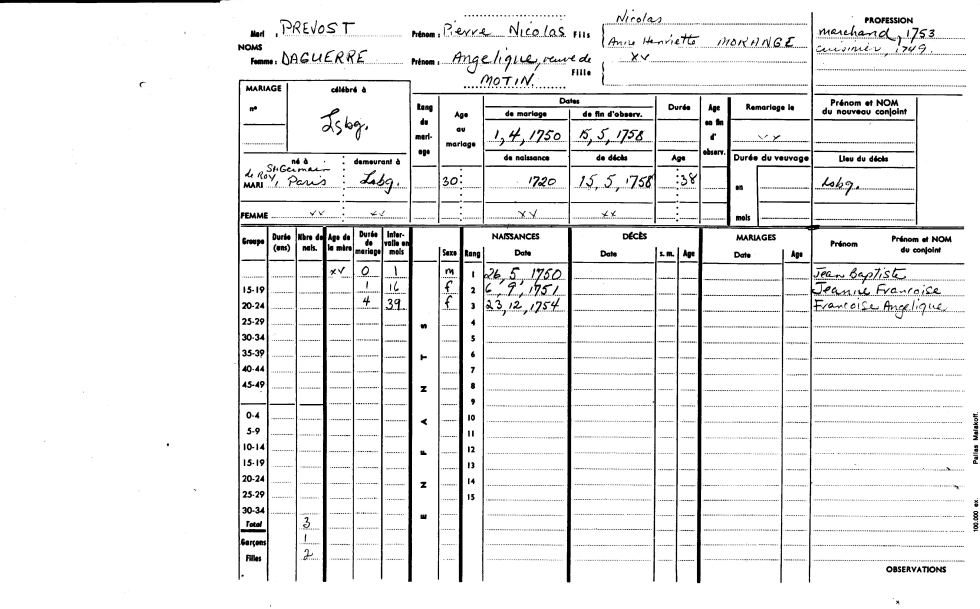 Nicolas
PROFESSION
Mari : PREVOST Prénom : Pierre Nicolas Fils Anne Henriette MORANGE marchand, 1753
NOMS cuisinier, 1749.
Femme : DAGUERRE Prénom : Angelique, veuve de Fille xx
MOTIN
MARIAGE célébré à Rang du mariage Age au mariage Dates Durée Age en fin d'observ. Remariage le Prénom et NOM du nouveau conjoint
n° de mariage de fin d'observ.
Lsbg. 1, 4, 1750 15, 5, 1758 xx
né à demeurant à de naissance de décès Age Durée du veuvage Lieu du décès
St Germain
MARI Paris Lsbg. 30 1720 15, 5, 1758 38 en Lsbg.
FEMME xx xx xx xx mois
Groupe Durée (ans) Nbre de nais. Age de la mère Durée de mariage Intervalle en mois Sexe Rang NAISSANCES DÉCÈS MARIAGES Prénom Prénom et NOM du conjoint
Date Date s. m. Age Date Age
xx 0 1 m 1 26, 5, 1750 Jean Baptiste
15-19 1 16 f 2 6, 9, 1751 Jeanne Francoise
20-24 4 39 f 3 23, 12, 1754 Francoise Angelique
25-29 4
30-34 5
35-39 6
40-44 7
45-49 8
9
0-4 10
5-9 11
10-14 12
15-19 13
20-24 14
25-29 15
30-34
ENFANTS
Total 3
Garçons 1
Filles 2
OBSERVATIONS
100.000 ex. Pallas Malakoff.